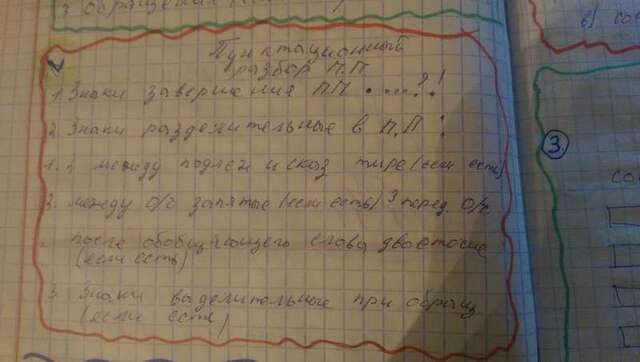 3. обращения
Пунктационный
разбор П.П
1. Знаки завершения ПП . .... ? !
2. Знаки разделительные в П.П :
1. между подлеж и сказ тире (если есть)
2. между о/ч запятые (если есть) перед о/ч
после обобщающего слова двоеточие
(если есть)
3. Знаки выделительные при обращ.
(если есть)
в)
3.